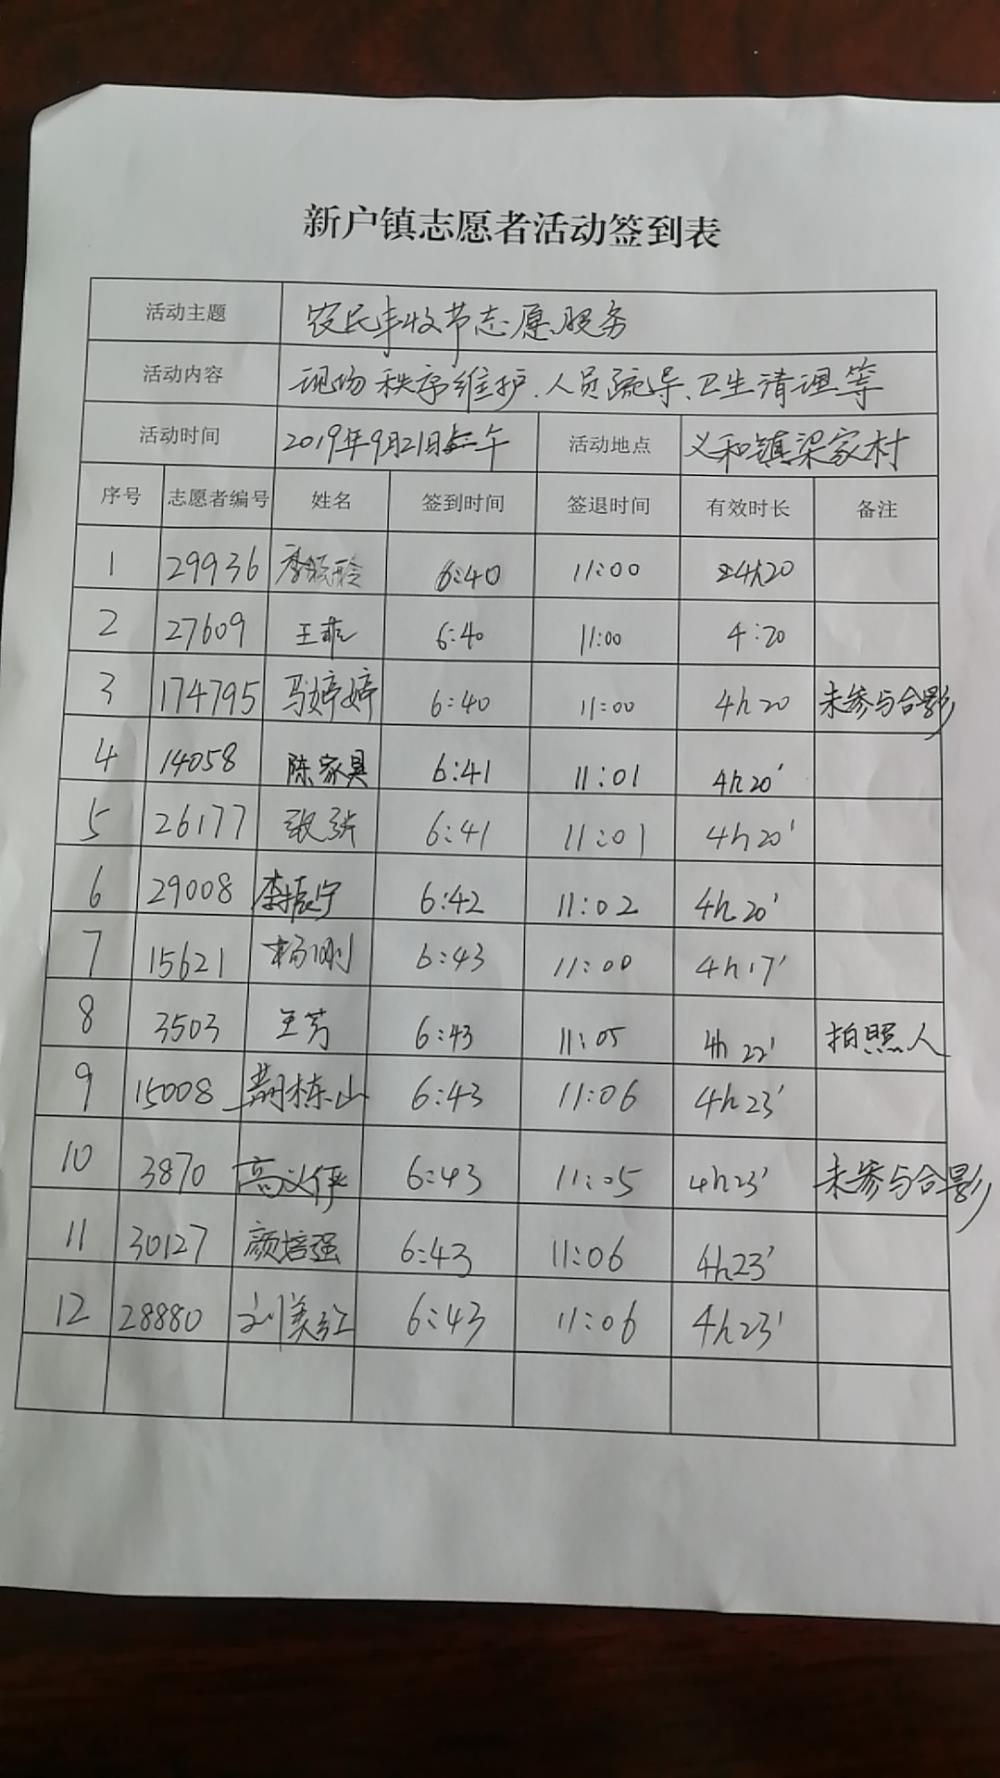 新户镇志愿者活动签到表
活动主题 农民丰收节志愿服务
活动内容 现场秩序维护、人员疏导、卫生清理等
活动时间 2019年9月21日上午 活动地点 义和镇梁家村
序号 志愿者编号 姓名 签到时间 签退时间 有效时长 备注
1 29936 6:40 11:00 4h20
2 27609 王菲 6:40 11:00 4:20
3 174795 马婷婷 6:40 11:00 4h20 未参与合影
4 14058 陈家具 6:41 11:01 4h20'
5 26177 6:41 11:01 4h20'
6 29008 李振宁 6:42 11:02 4h20'
7 15621 杨刚 6:43 11:00 4h17'
8 3503 王芳 6:43 11:05 4h22' 拍照人
9 15008 荆栋山 6:43 11:06 4h23'
10 3870 6:43 11:05 4h23' 未参与合影
11 30127 颜培强 6:43 11:06 4h23'
12 28880 刘美红 6:43 11:06 4h23'